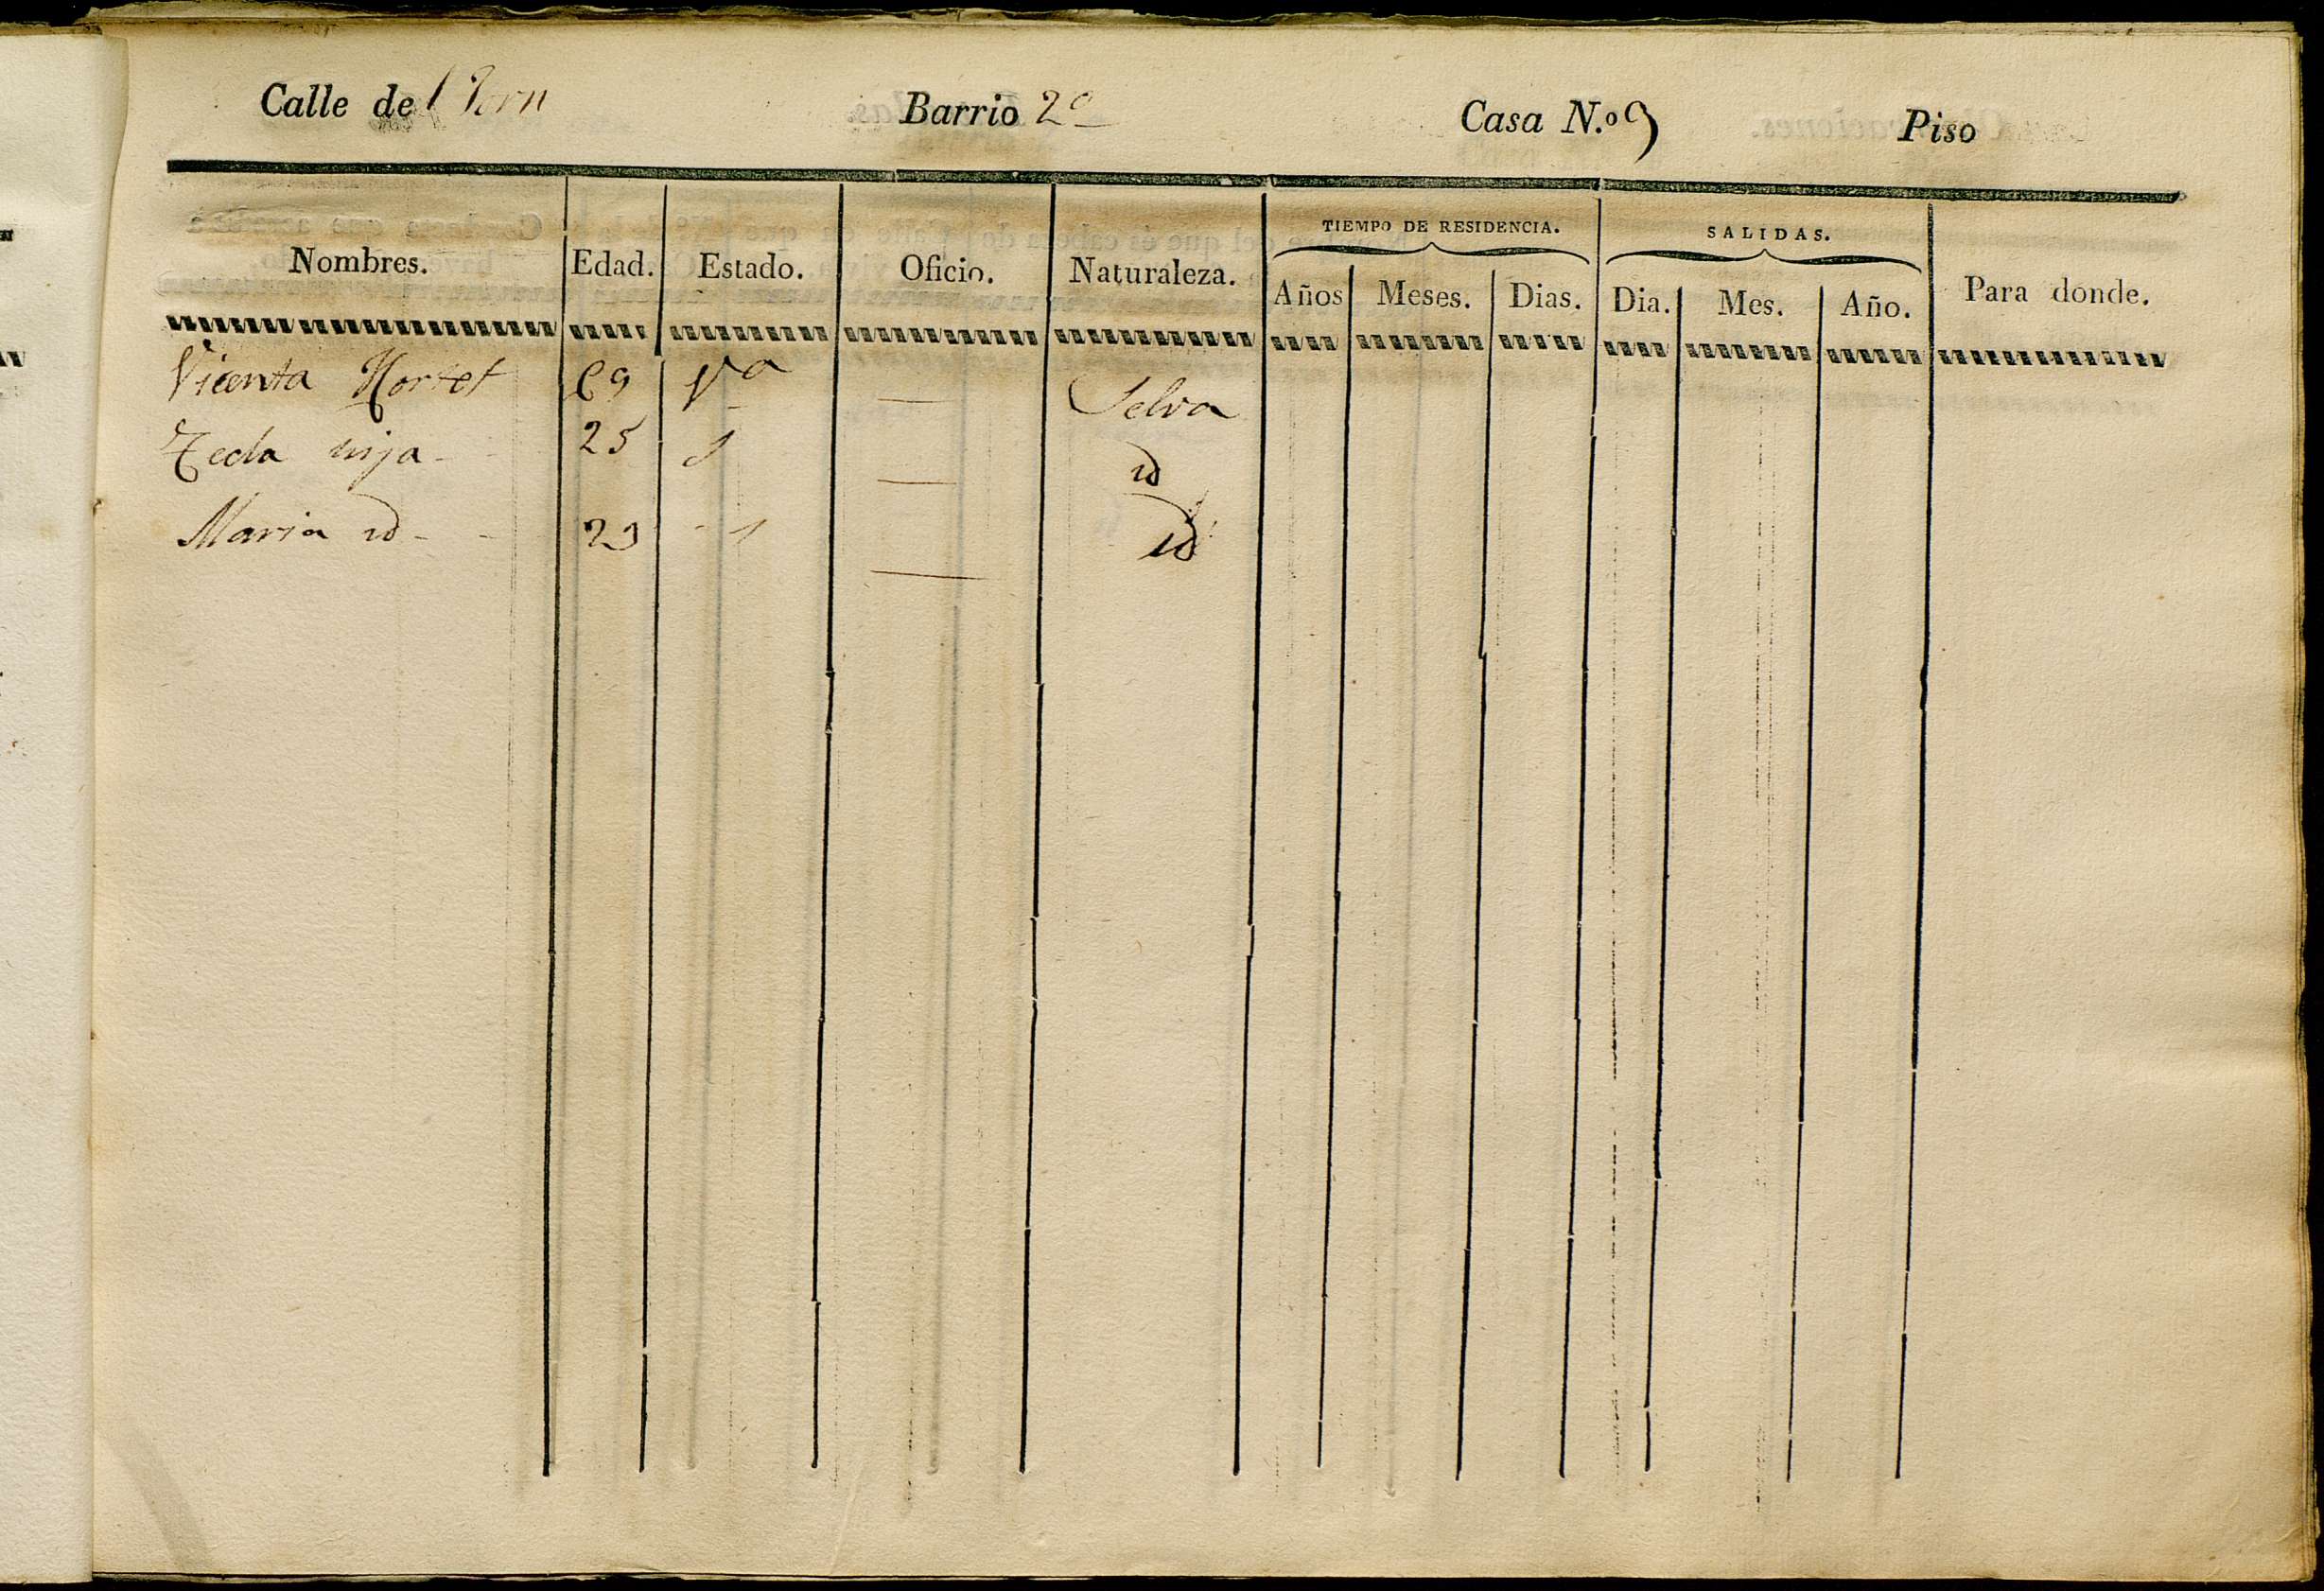 Calle del Forn Barrio 2º Casa N.º 9 Piso
TIEMPO DE RESIDENCIA. SALIDAS.
Nombres. Edad. Estado. Oficio. Naturaleza. Años Meses. Dias. Dia. Mes. Año. Para donde.
Vicenta Hortet 69 Vª — Selva
Tecla hija - 25 S — id
Maria id - - 23 - S — id